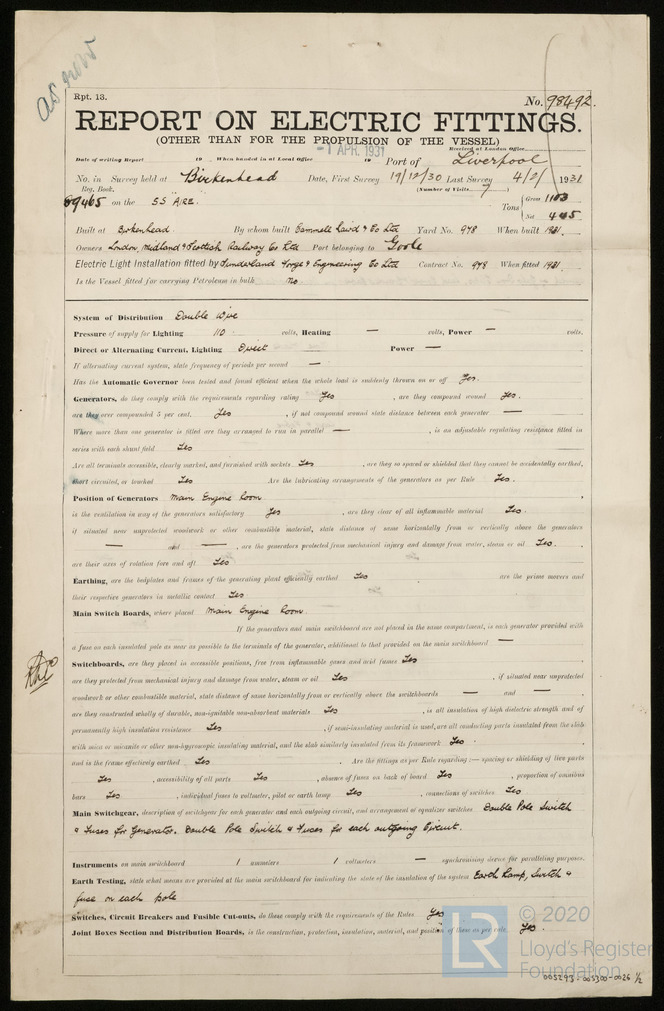 as now
Rpt. 13.
No. 98492.
REPORT ON ELECTRIC FITTINGS.
(OTHER THAN FOR THE PROPULSION OF THE VESSEL)
Received at London Office
-1 APR. 1931
Date of writing Report 19 When handed in at Local Office 19 Port of Liverpool
No. in Survey held at Birkenhead Date, First Survey 19/12/30 Last Survey 4/2/ 1931
Reg. Book. (Number of Visits 7)
89465 on the SS AIRE. Tons { Gross 1103
Net 445
Built at Birkenhead. By whom built Cammell Laird & Co Ltd Yard No. 978 When built 1931.
Owners London, Midland & Scottish Railway Co Ltd Port belonging to Goole
Electric Light Installation fitted by Sunderland Forge & Engineering Co Ltd Contract No. 978 When fitted 1931.
Is the Vessel fitted for carrying Petroleum in bulk No.
System of Distribution Double Wire
Pressure of supply for Lighting 110 volts, Heating — volts, Power — volts.
Direct or Alternating Current, Lighting Direct Power —
If alternating current system, state frequency of periods per second —
Has the Automatic Governor been tested and found efficient when the whole load is suddenly thrown on or off Yes.
Generators, do they comply with the requirements regarding rating Yes, are they compound wound Yes.
are they over compounded 5 per cent. Yes, if not compound wound state distance between each generator —
Where more than one generator is fitted are they arranged to run in parallel —, is an adjustable regulating resistance fitted in
series with each shunt field Yes
Are all terminals accessible, clearly marked, and furnished with sockets Yes, are they so spaced or shielded that they cannot be accidentally earthed,
short circuited, or touched Yes Are the lubricating arrangements of the generators as per Rule Yes.
Position of Generators Main Engine Room.
is the ventilation in way of the generators satisfactory Yes, are they clear of all inflammable material Yes.
if situated near unprotected woodwork or other combustible material, state distance of same horizontally from or vertically above the generators
— and —, are the generators protected from mechanical injury and damage from water, steam or oil Yes.
are their axes of rotation fore and aft Yes
Earthing, are the bedplates and frames of the generating plant efficiently earthed Yes are the prime movers and
their respective generators in metallic contact Yes.
Main Switch Boards, where placed Main Engine Room.
If the generators and main switchboard are not placed in the same compartment, is each generator provided with
a fuse on each insulated pole as near as possible to the terminals of the generator, additional to that provided on the main switchboard —
Switchboards, are they placed in accessible positions, free from inflammable gases and acid fumes Yes
are they protected from mechanical injury and damage from water, steam or oil Yes, if situated near unprotected
woodwork or other combustible material, state distance of same horizontally from or vertically above the switchboards — and —
are they constructed wholly of durable, non-ignitable non-absorbent materials Yes, is all insulation of high dielectric strength and of
permanently high insulation resistance Yes, if semi-insulating material is used, are all conducting parts insulated from the slab
with mica or micanite or other non-hygroscopic insulating material, and the slab similarly insulated from its framework Yes.
and is the frame effectively earthed Yes. Are the fittings as per Rule regarding:— spacing or shielding of live parts
Yes, accessibility of all parts Yes, absence of fuses on back of board Yes, proportion of omnibus
bars Yes, individual fuses to voltmeter, pilot or earth lamp Yes, connections of switches Yes
Main Switchgear, description of switchgear for each generator and each outgoing circuit, and arrangement of equalizer switches Double Pole Switch
& Fuses for Generator. Double Pole Switch & Fuses for each outgoing Circuit.
Instruments on main switchboard 1 ammeters 1 voltmeters — synchronising device for paralleling purposes.
Earth Testing, state what means are provided at the main switchboard for indicating the state of the insulation of the system Earth Lamp, Switch &
fuse on each pole
Switches, Circuit Breakers and Fusible Cut-outs, do these comply with the requirements of the Rules Yes
Joint Boxes Section and Distribution Boards, is the construction, protection, insulation, material, and position of these as per rule Yes.
LR
© 2020
Lloyd's Register
Foundation
005293-005300-0026 1/2